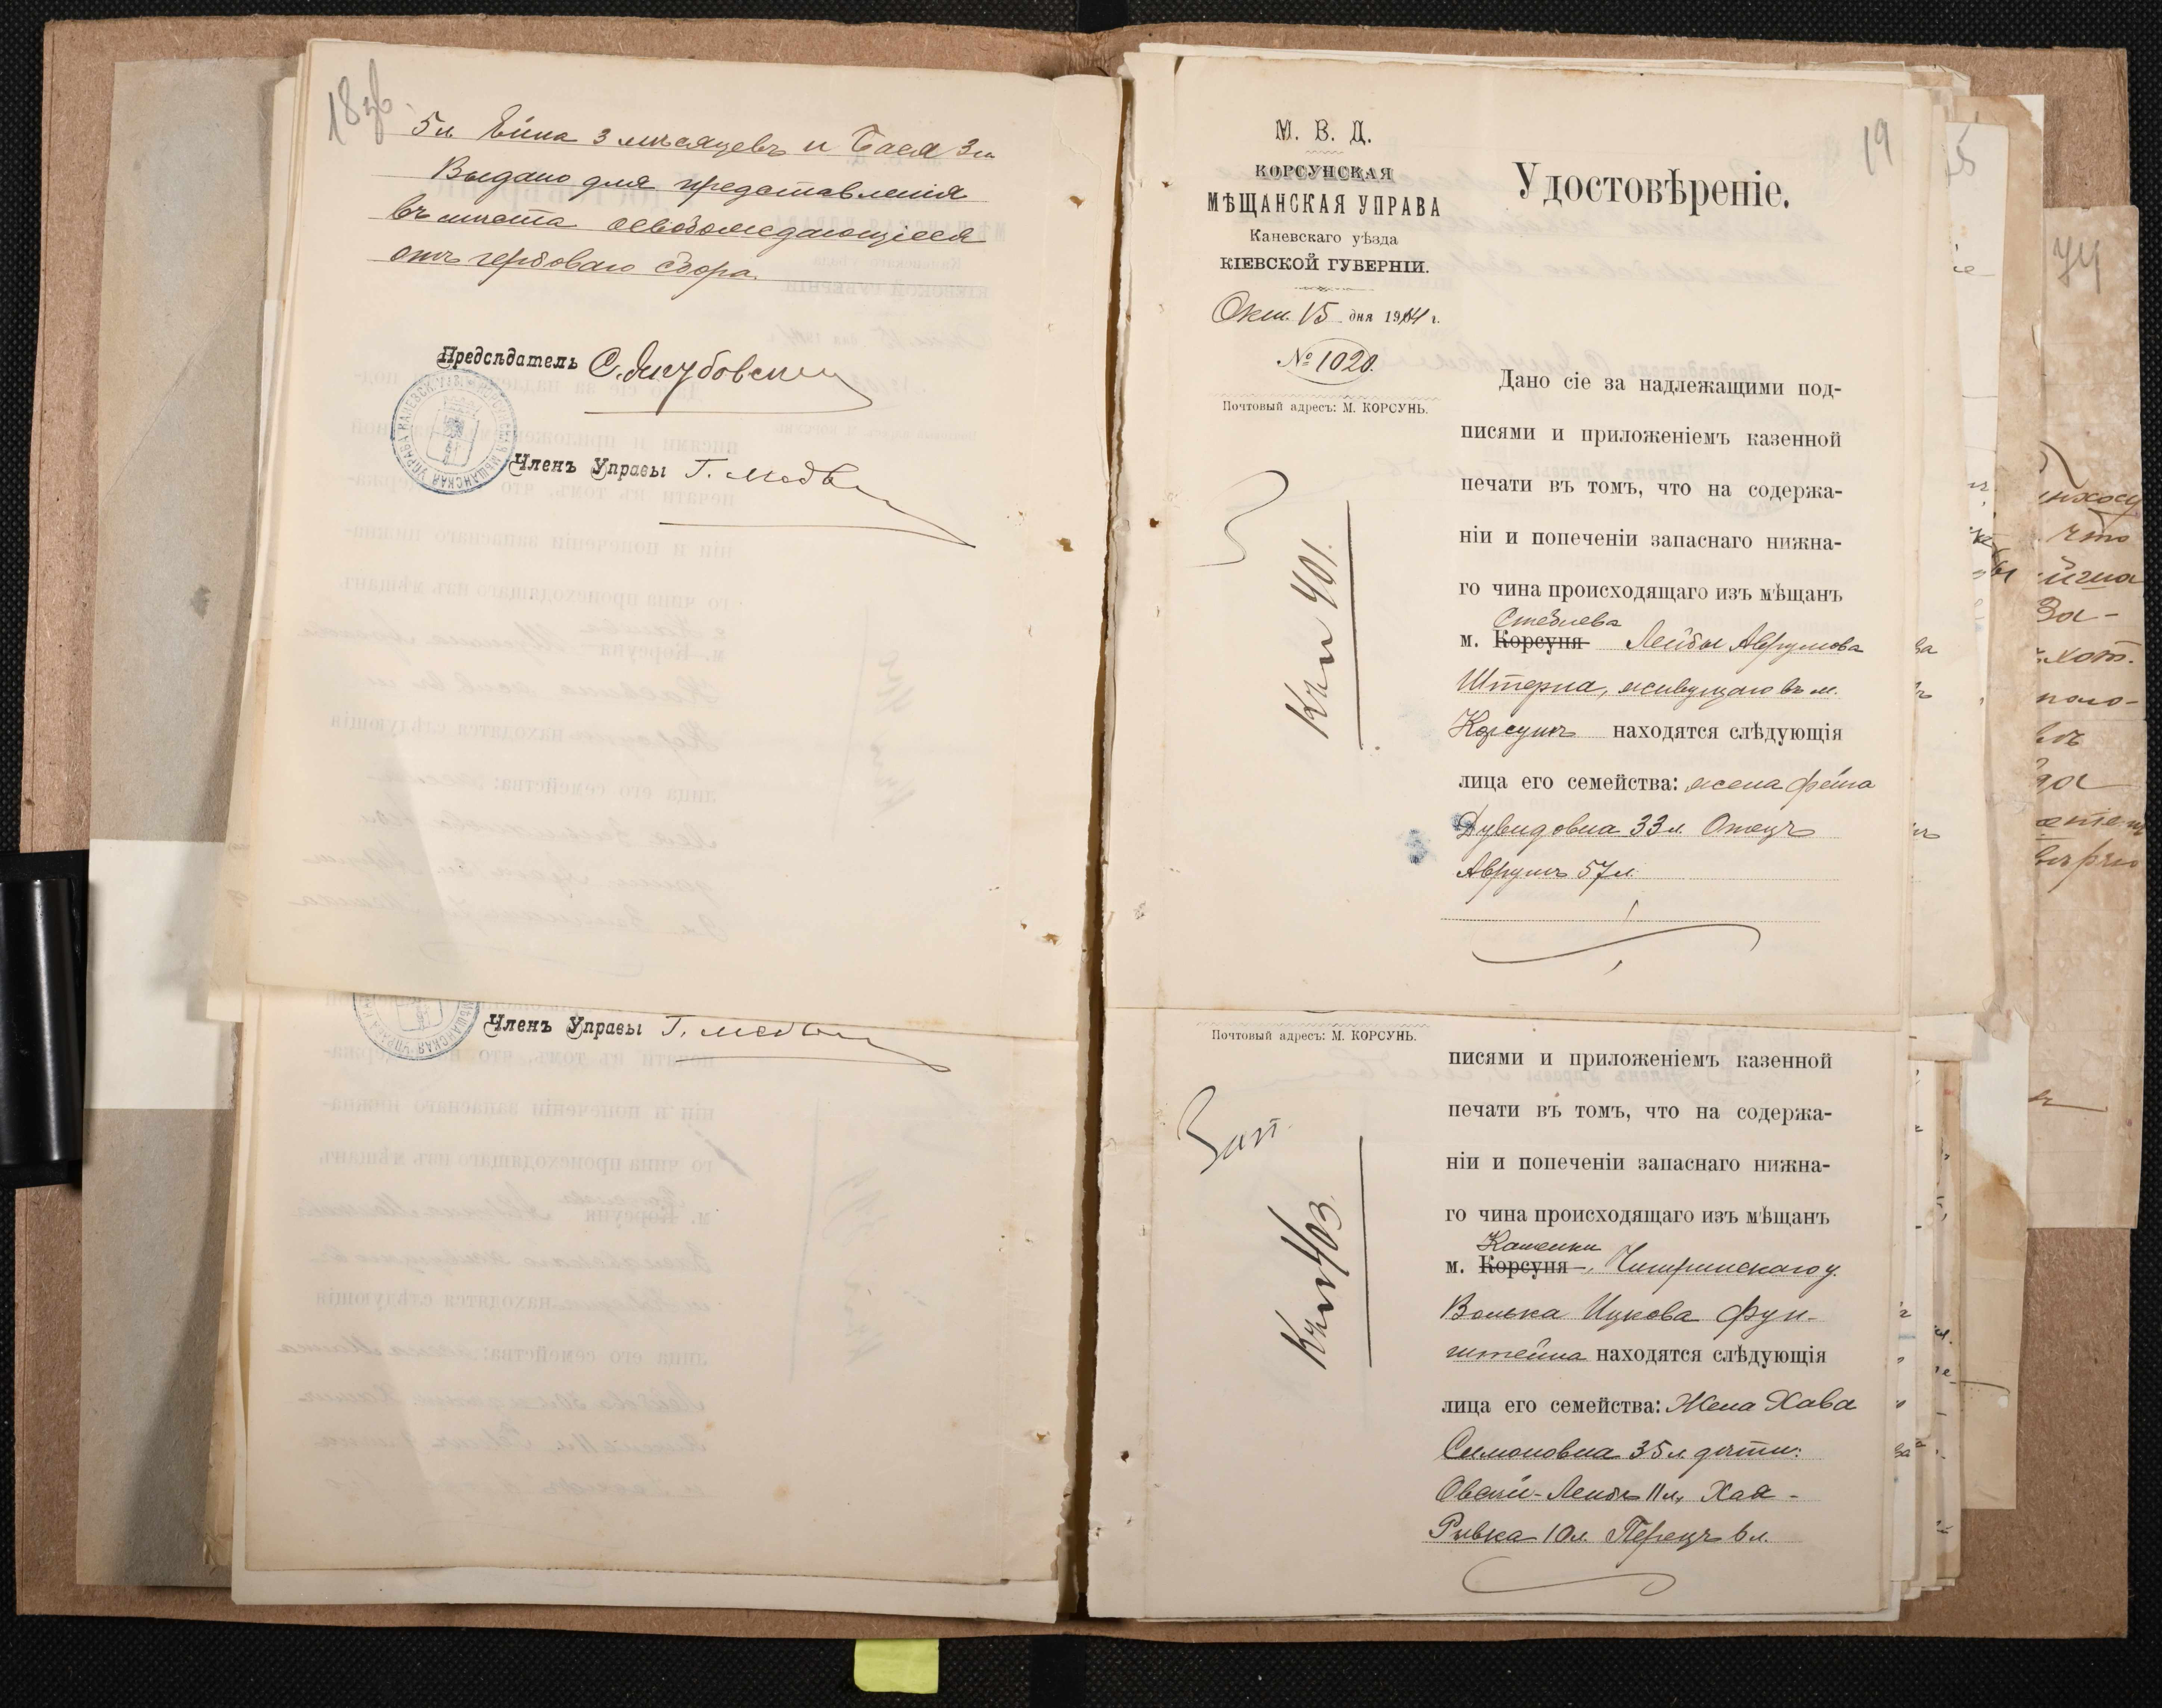 18об
5 л. Ейна 3 мѣсяцевъ и Бася 3 л.
Выдано для представленія
въ мѣста освобождающіеся
отъ гербоваго сбора.
Предсѣдатель С. Якубовскій
Членъ Управы Г. Медв
Членъ Управы Г. Медв
19
М. В. Д.
КОРСУНСКАЯ
МѢЩАНСКАЯ УПРАВА
Каневскаго уѣзда
КІЕВСКОЙ ГУБЕРНІИ.
Окт. 15 дня 1914 г.
№ 1020.
Почтовый адресъ: М. КОРСУНЬ.
Удостовѣреніе.
Дано сіе за надлежащими под-
писями и приложеніемъ казенной
печати въ томъ, что на содержа-
ніи и попеченіи запаснаго нижна-
го чина происходящаго изъ мѣщанъ
Стеблева
м. Корсуня Лейбы Аврумова
Штерна, живущаго въ м.
Корсунѣ находятся слѣдующія
лица его семейства: жена Фейга
Дувидовна 33 л. Отецъ
Аврумъ 57 л.
К № 401.
Почтовый адресъ: М. КОРСУНЬ.
писями и приложеніемъ казенной
печати въ томъ, что на содержа-
ніи и попеченіи запаснаго нижна-
го чина происходящаго изъ мѣщанъ
Каменки
м. Корсуня, Чигиринскаго у.
Волька Ицкова Фун-
штейна находятся слѣдующія
лица его семейства: Жена Хава
Симоновна 35 л. дѣти:
Овсѣй-Лейбъ 11 л., Хая-
Ривка 10 л. Перецъ 6 л.
Зап.
К № 403.